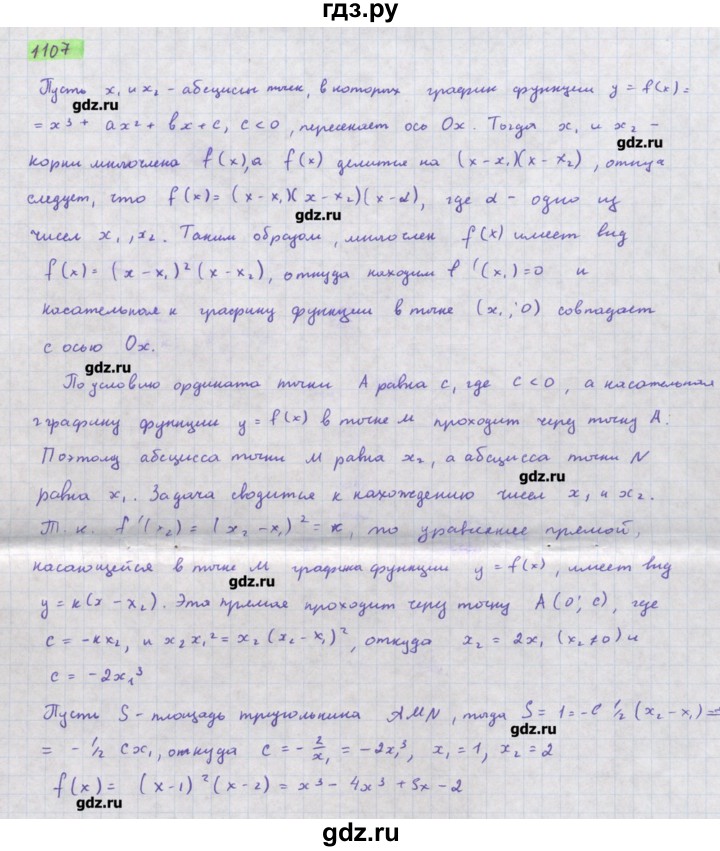 гдз.ру
1107
Пусть x₁ и x₂ - абсциссы точек, в которых график функции y = f(x) =
gdz.ru
= x³ + ax² + bx + c, c < 0, пересекает ось Ox. Тогда x₁ и x₂ -
gdz.ru
корни многочлена f(x), а f(x) делится на (x - x₁)(x - x₂), откуда
следует, что f(x) = (x - x₁)(x - x₂)(x - α), где α - одно из
gdz.ru
чисел x₁, x₂. Таким образом, многочлен f(x) имеет вид
f(x) = (x - x₁)²(x - x₂), откуда находим f'(x₁) = 0 и
касательная к графику функции в точке (x₁; 0) совпадает
с осью Ox.
gdz.ru
По условию ордината точки A равна c, где c < 0, а касательная
к графику функции y = f(x) в точке M проходит через точку A.
Поэтому абсцисса точки M равна x₂, а абсцисса точки N
gdz.ru
равна x₁. Задача сводится к нахождению чисел x₁ и x₂.
Т. к. f'(x₂) = (x₂ - x₁)² = k, то уравнение прямой,
касающейся в точке M графика функции y = f(x), имеет вид
gdz.ru
y = k(x - x₂). Эта прямая проходит через точку A(0; c), где
c = -kx₂, и x₂x₁² = x₂(x₂ - x₁)², откуда x₂ = 2x₁ (x₂ ≠ 0) и
gdz.ru
c = -2x₁³
Пусть S - площадь треугольника AMN, тогда S = 1 = -c ½ (x₂ - x₁) =
gdz.ru
= -½ cx₁, откуда c = -2/x₁ = -2x₁³, x₁ = 1, x₂ = 2
f(x) = (x - 1)²(x - 2) = x³ - 4x³ + 5x - 2
gdz.ru
gdz.ru